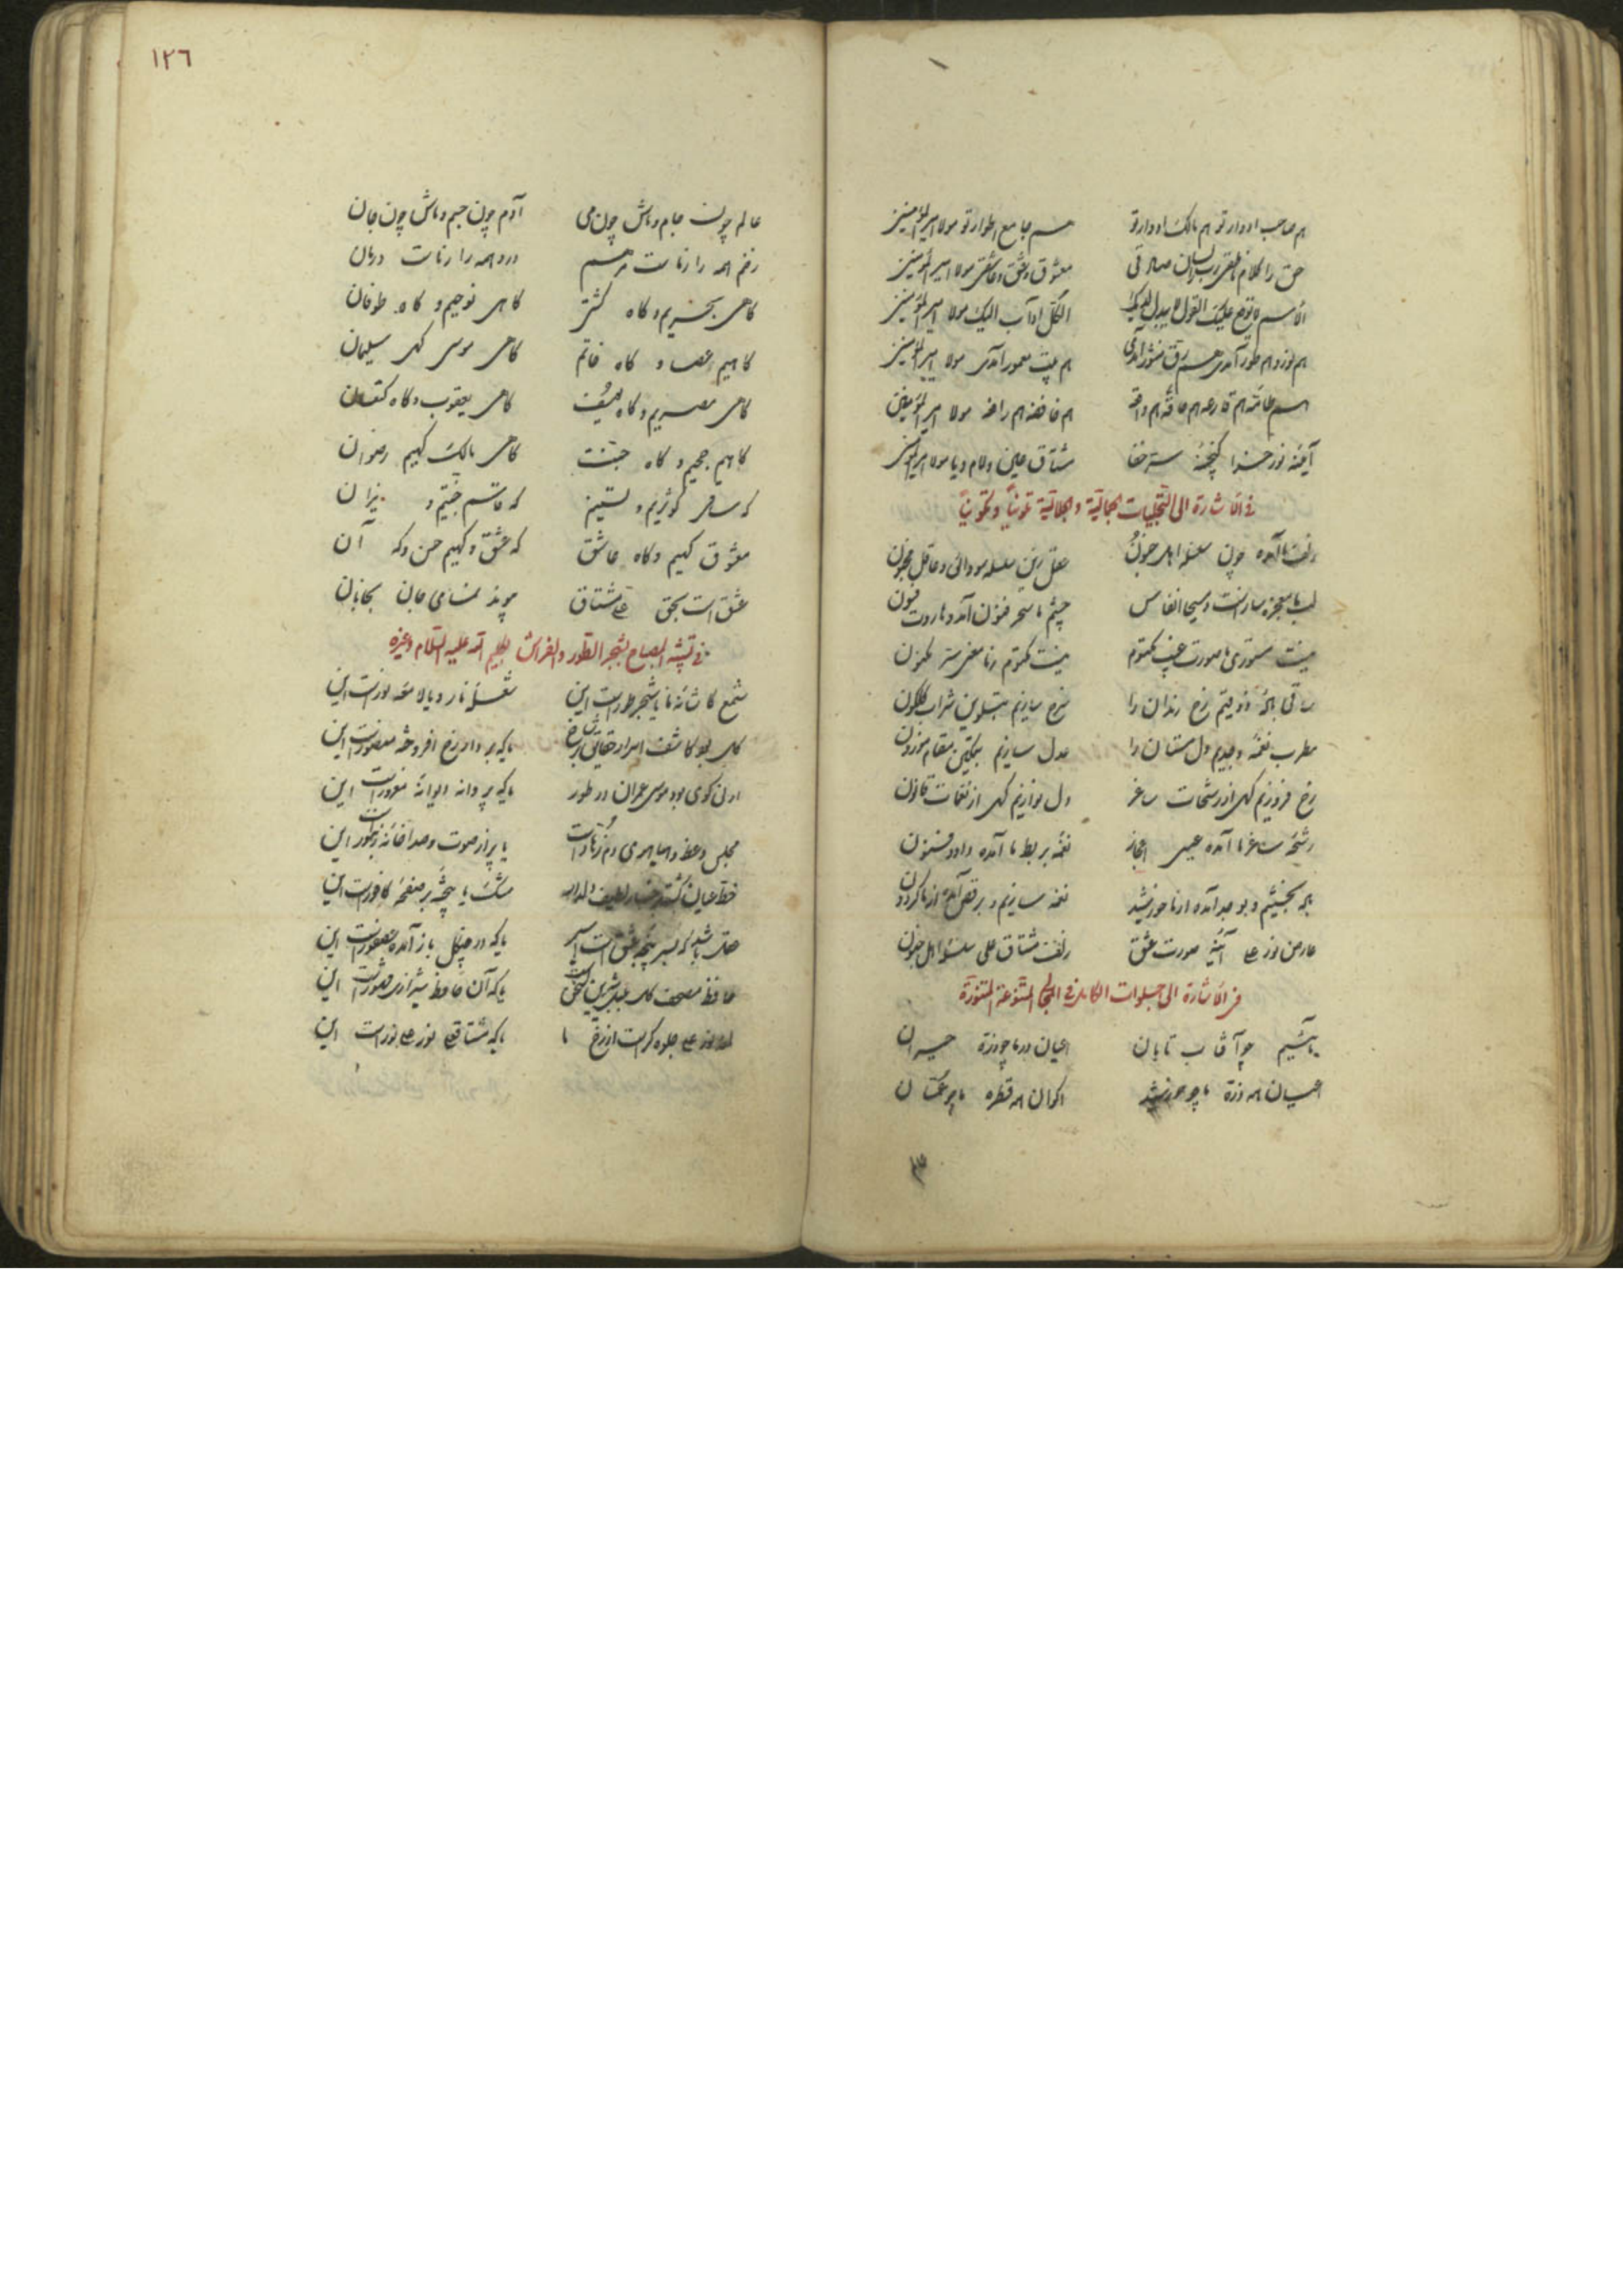 هم صاحب ادوار تو هم مالک ادوار تو هم جامع اطوار تو مولا امیرالمؤمنین
حق را کلام ناطقی رب را لسان صادقی معشوق و عشق و عاشقی مولا امیرالمؤمنین
علیک القول الکل آداب الیک مولا امیرالمؤمنین
هم نور و هم طور آمدی هم رق منشور آمدی هم بیت معمور آمدی مولا امیرالمؤمنین
هم طامه هم قارعه هم حاقه هم واقعه هم خافضه هم رافعه مولا امیرالمؤمنین
آیینه نور خدا گنجینه سر خفا مشتاق عین و لام و یا مولا امیرالمؤمنین
فی الاشارة الی التجلیات الجمالیة و الجلالیة تلوینا و تکوینا
زلف ما آمده چون سلسله اهل جنون عقل زین سلسله سودائی و عاقل مجنون
لب ما معجزه ساز است و مسیحا انفاس چشم ما سحر فنون آمد و هاروت فسون
نیست مستوری ما صورت غیب مکتوم نیست مکتوم ز ما معنی سر مکنون
ساقی باده ذوقیم رخ رندان را سرخ سازیم بتلوین شراب گلگون
مطرب نغمه وجدیم دل مستان را عدل سازیم بتمکین مقام موزون
رخ فروزیم گهی از رشحات ساغر دل نوازیم گهی از نغمات قانون
رشحه ساغر ما آمده عیسی اعجاز نغمه بربط ما آمده داود فنون
باده بخشیم و بوجد آمده از ما خورشید نغمه سازیم و برقص آمده از ما گردون
عارض نور علی آینه صورت عشق زلف مشتاق علی سلسله اهل جنون
فی الاشارة الی جلوات الکامل فی المجالی المتنوعة المتنورة
مائیم چو آفتاب تابان اعیان در ما چو ذره حیران
اعیان همه ذره ما چو خورشید اکوان همه قطره ما چو عمان
١٢٦
عالم چون جام و ماش چون می آدم چون جسم و ماش چون جان
زخم همه را ز ماست مرهم درد همه را ز ماست درمان
گاهی بحریم و گاه کشتی گاهی نوحیم و گاه طوفان
گاهیم عصا و گاه خاتم گاهی موسی گهی سلیمان
گاهی مصریم و گاه یوسف گاهی یعقوب و گاه کنعان
گاهیم جحیم و گاه جنت گاهی مالک گهیم رضوان
که ساقی کوثریم و تسنیم که قاسم جنتیم و نیران
معشوق گهیم و گاه عاشق که عشق و گهیم حسن و که آن
عشق است بحق علی مشتاق پیوند نمای جان بجانان
فی تشبیه المصباح بشجر الطور و الفراش بکلیم الله علیه السلام و غیره
شمع کاشانه ما یا شجر طور است این شعله نار و یا لامعه نور است این
گل بود کاشف اسرار حقایق ز رخش یا که بر دار رخ افروخته منصور است این
ارنی گوی بود موسی عمران در طور یا که پروانه دیوانه مغرور است این
مجلس وعظ و هیاهوی و زهاد است یا پر از صوت و صدا خانه زنبور است این
خط عیان گشته لطیف دلدار مشک یا بیخته بر صفحه کافور است این
عقل باشد که بسر پنجه عشق است اسیر یا که در چنگل باز آمده عصفور است این
حافظ مصحف گل بلبل شیرین سخن است یا که آن حافظ شیرازی مشهور است این
نور علی جلوه گر است از رخ ما یا که مشتاق علی نور علی نور است این